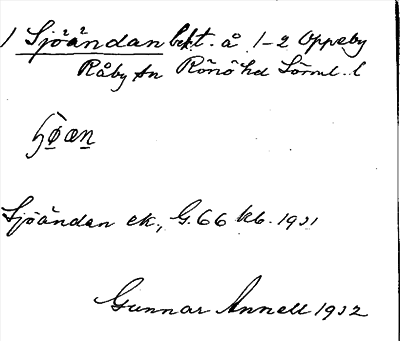 1 Sjöändan bet. å 1-2 Oppeby
Råby sn Rönö hd Sörml. l
Sjöändan ek., G. 66 kb. 1931
Gunnar Annell 1932